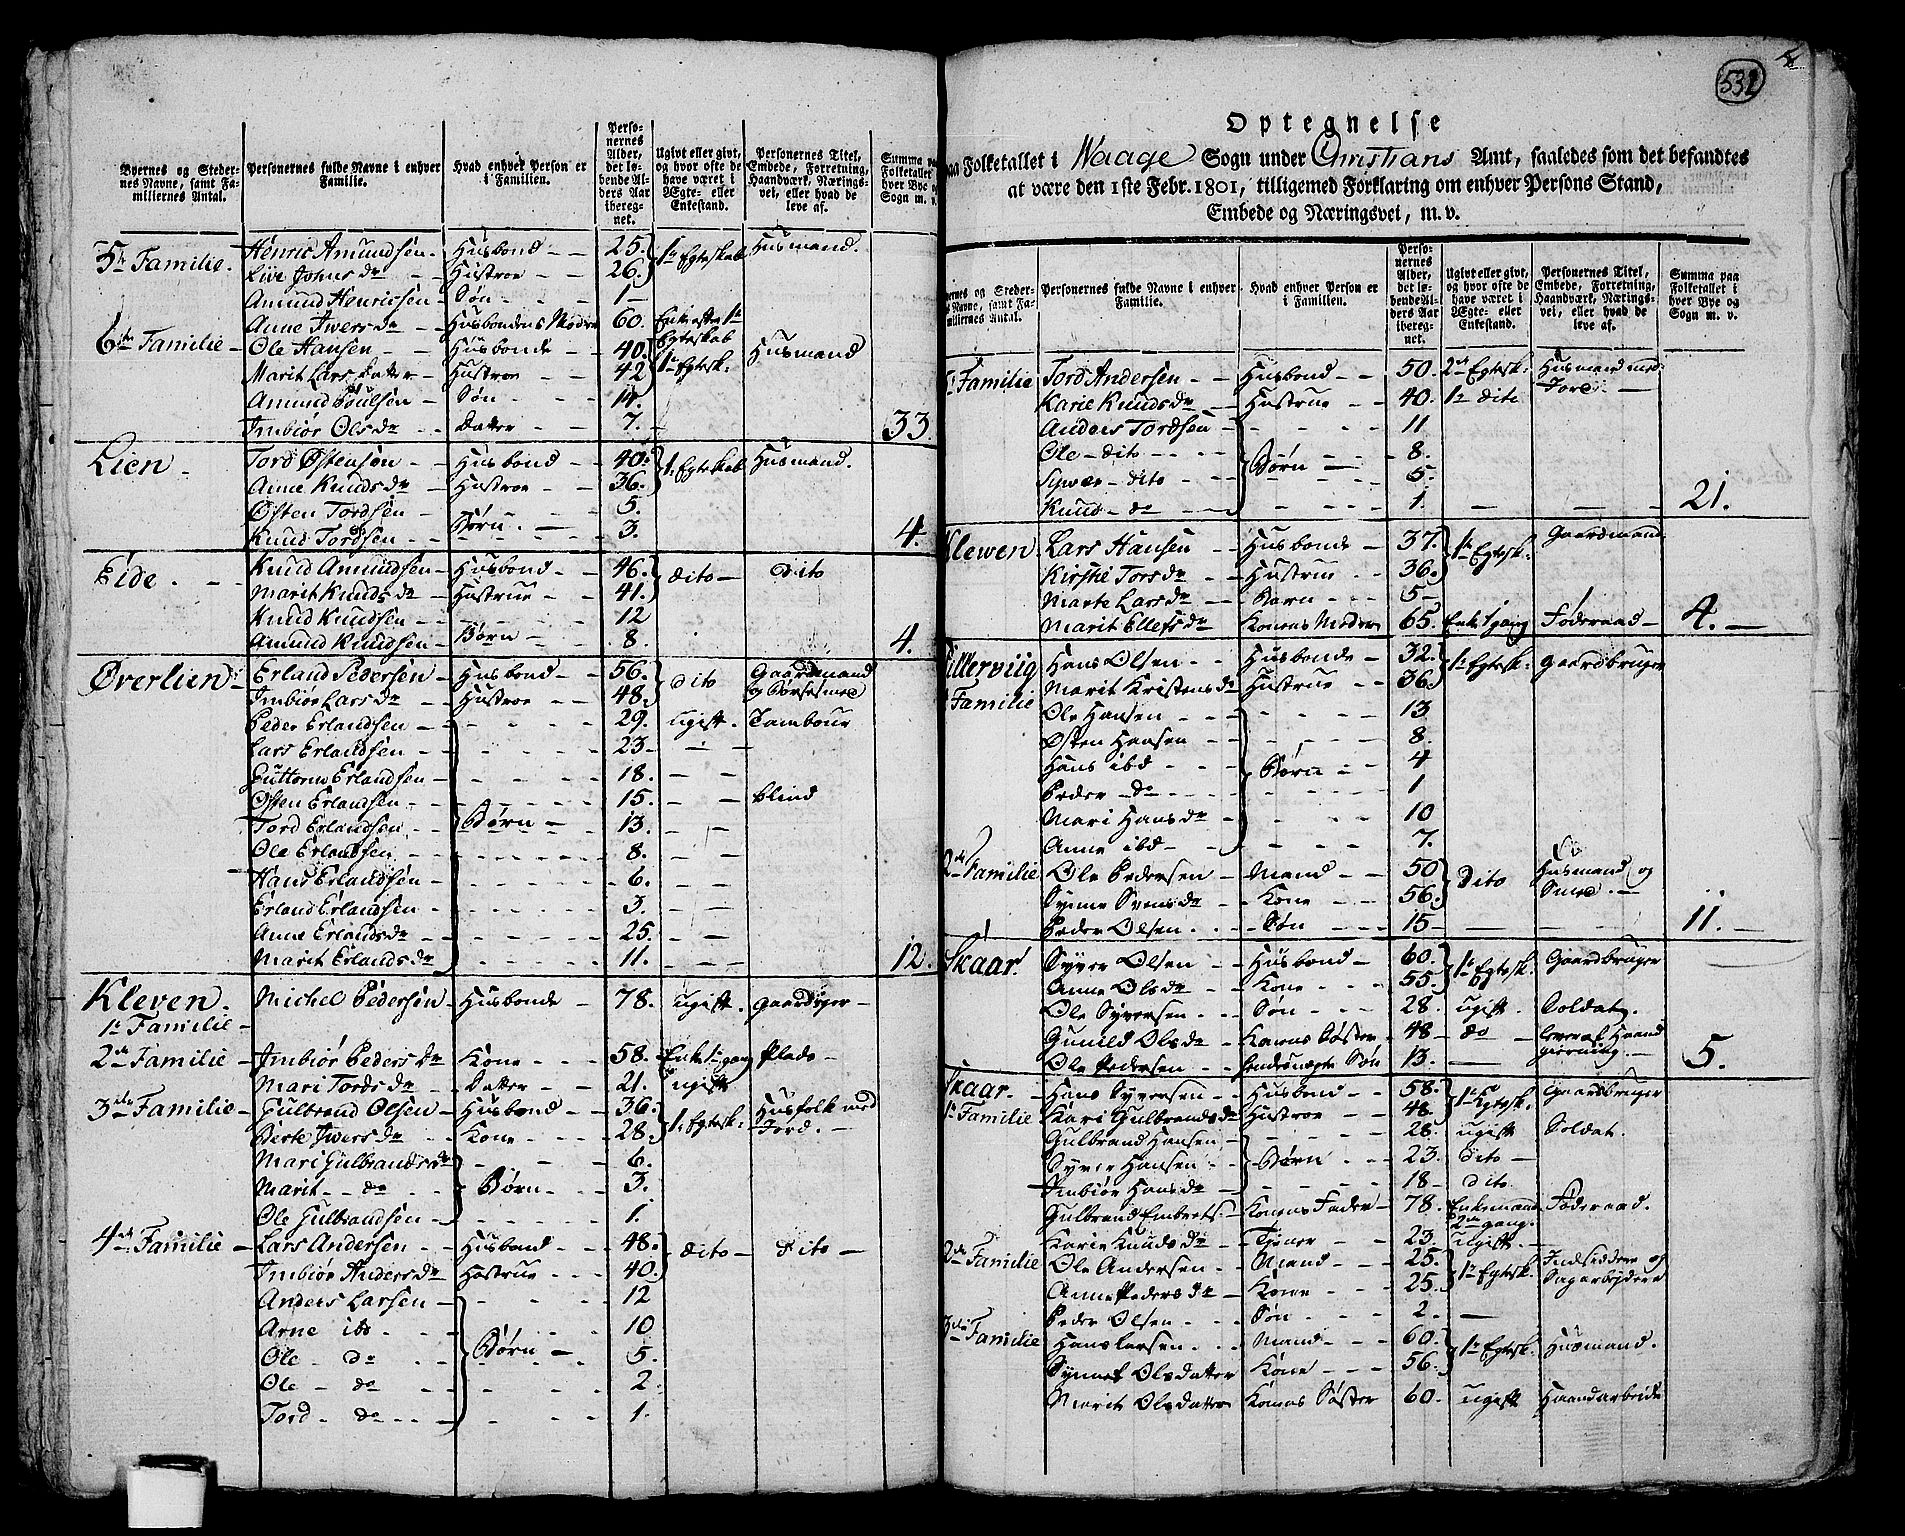 Byernes og Steder-
nes Navne, samt Fa-
miliernes Antal.
Personernes fulde Navne i enhver
Familie.
Hvad enhver Person er
i Familien.
Perso-
nernes
Alder,
det lø-
bende Al-
ders Aar
ibereg-
net.
Ugivt eller givt,
og hvor ofte de
have været i
Ægte- eller
Enkestand.
Personernes Titel,
Embede, Forretning,
Haandværk, Nærings-
vei, eller hvad de
leve af.
Summa paa
Folketallet i
hver Bye og
Sogn m. v.
5te Familie. Henric Amundsen Husbond 25. 1te Egteskab Husmand.
Live Johns dr Hustroe 26.
Amund Henricsen Søn 1
Anne Iwers dr Husbondens Moder 60. Enke efter 1te Egteskab
6te Familie Ole Hansen Husbonde 40. 1te Egtesk: Husmand
Marit Lars datter Hustroe 42
Amund Poulsen Søn 14.
Imbiør Ols dr Datter 7. 33.
Lien Tord Østensøn Husbond 40. 1te Egteskab Husmand.
Anne Knuds dr Hustroe 36.
Østen Tordsen 5.
Knud Tordsen Børn 3. 4.
Eide. Knud Amundsen Husbond 46. dito dito
Marit Knuds dr Hustrue 41.
Knud Knudsen 12
Amund Knudsen Børn 8. 4.
Øverlien Erland Pedersen Husbond 56. dito Gaardmand og Børsesmed
Imbiør Lars dr Hustroe 48.
Peder Erlandsen 29. ugift. Tambour
Lars Erlandsen 23
Guttorm Erlandsen 18.
Østen Erlandsen 15. blind
Tord Erlandsen Børn 13.
Ole Erlandsen 8.
Hans Erlandsen 6.
Erland Erlandsen 3.
Anne Erlands dr 25.
Marit Erlands dr 11. 12.
Kleven. Michel Pedersøn Husbonde 78. ugift. Gaardeyer
1te Familie
2de Familie Imbiør Peders dr Kone 58. Enke 1te gang Plads
Mari Tords dr Datter 21. ugift
3die Familie Gulbrand Olsen Husbond 36. 1te Egtesk: Husfolk med Jord.
Berte Iwers dr Kone 28.
Mari Gulbrands dr 6.
Marit do Børn 3.
Ole Gulbrandsen 1.
4de Familie Lars Andersen Husbond 48. dito dito
Imbiør Anders dr Hustrue 40.
Anders Larsen 12
Arne ibd 10
Ole do Børn 5.
Ole do 2
Tord do 1.
532
Optegnelse
paa Folketallet i Waage Sogn under Christians Amt, saaledes som det befandtes
at være den 1ste Febr. 1801, tilligemed Forklaring om enhver Persons Stand,
Embede og Næringsvei, m. v.
Personernes fulde Navne i enhver
Familie.
Hvad enhver Person er
i Familien.
Perso-
nernes
Alder,
det lø-
bende Al-
ders Aar
ibereg-
net.
Ugivt eller givt,
og hvor ofte de
have været i
Ægte- eller
Enkestand.
Personernes Titel,
Embede, Forretning,
Haandværk, Nærings-
vei, eller hvad de
leve af.
Summa paa
Folketallet i
hver Bye og
Sogn m. v.
Familie Tord Andersen Husbond 50. 2de Egtesk: Husmand med Jord.
Karie Knuds dr Hustrue 40. 1te dito
Anders Tordsen 11
Ole dito 8.
Siwer dito Børn 5
Knud do 1. 21.
Klewen Lars Hansen Husbonde 37. 1te Egtesk: Gaardmand
Kirsti Tors dr Hustrue 36.
Marte Lars dr Barn 5
Marit Ellefs dr Konens Moder 65. Enke 1 gang Føderaad 4.
Tillerviig Hans Olsen Husbonde 32. 1te Egtesk: Gaardbruger
Familie Marit Kristens dr Hustrue 36.
Ole Hansen 13
Østen Hansen 8
Hans ibd Børn 4
Peder do 1
Mari Hans dr 10
Anne ibd 7.
2de Familie Ole Pedersen Mand 50 Dito Husmand og Smed.
Synne Svens dr Kone 56.
Peder Olsen Søn 15 11.
Skaar. Syver Olsen Husbond 60. 1te Egtesk. Gaardbruger
Anne Ols dr Kone 55.
Ole Syversen Søn 28. ugift. Soldat
Gunild Ols dr Konens Søster 48 do lever af Haand gierning.
Ole Pedersen Søn 13. 5.
Skaar. Hans Syversen Husbond 58. 1te Egtesk. Gaardbruger
1te Familie Kari Gulbrands dr Hustroe 48.
Gulbrand Hansen 28. ugift Soldat.
Syver Hansen Børn 23. dito
Imbiør Hans dr 18 dito
Gulbrand Embrets Konens Fader 78. Enkemand 2de gang. Føderaad.
Karie Knuds dr Tjener 23. ugift.
2de Familie Ole Andersen Mand 25. 1te Egtesk. Indsiddere og Dagarbejdere
Anne Peders dr Kone 25.
Peder Olsen Søn 2.
3die Familie Hans Larsen Mand 60. 1te Egtesk. Husmand.
Synnef Olsdatter Kone 56.
Marit Olsdatter Konens Søster 60. ugift Haandarbeide